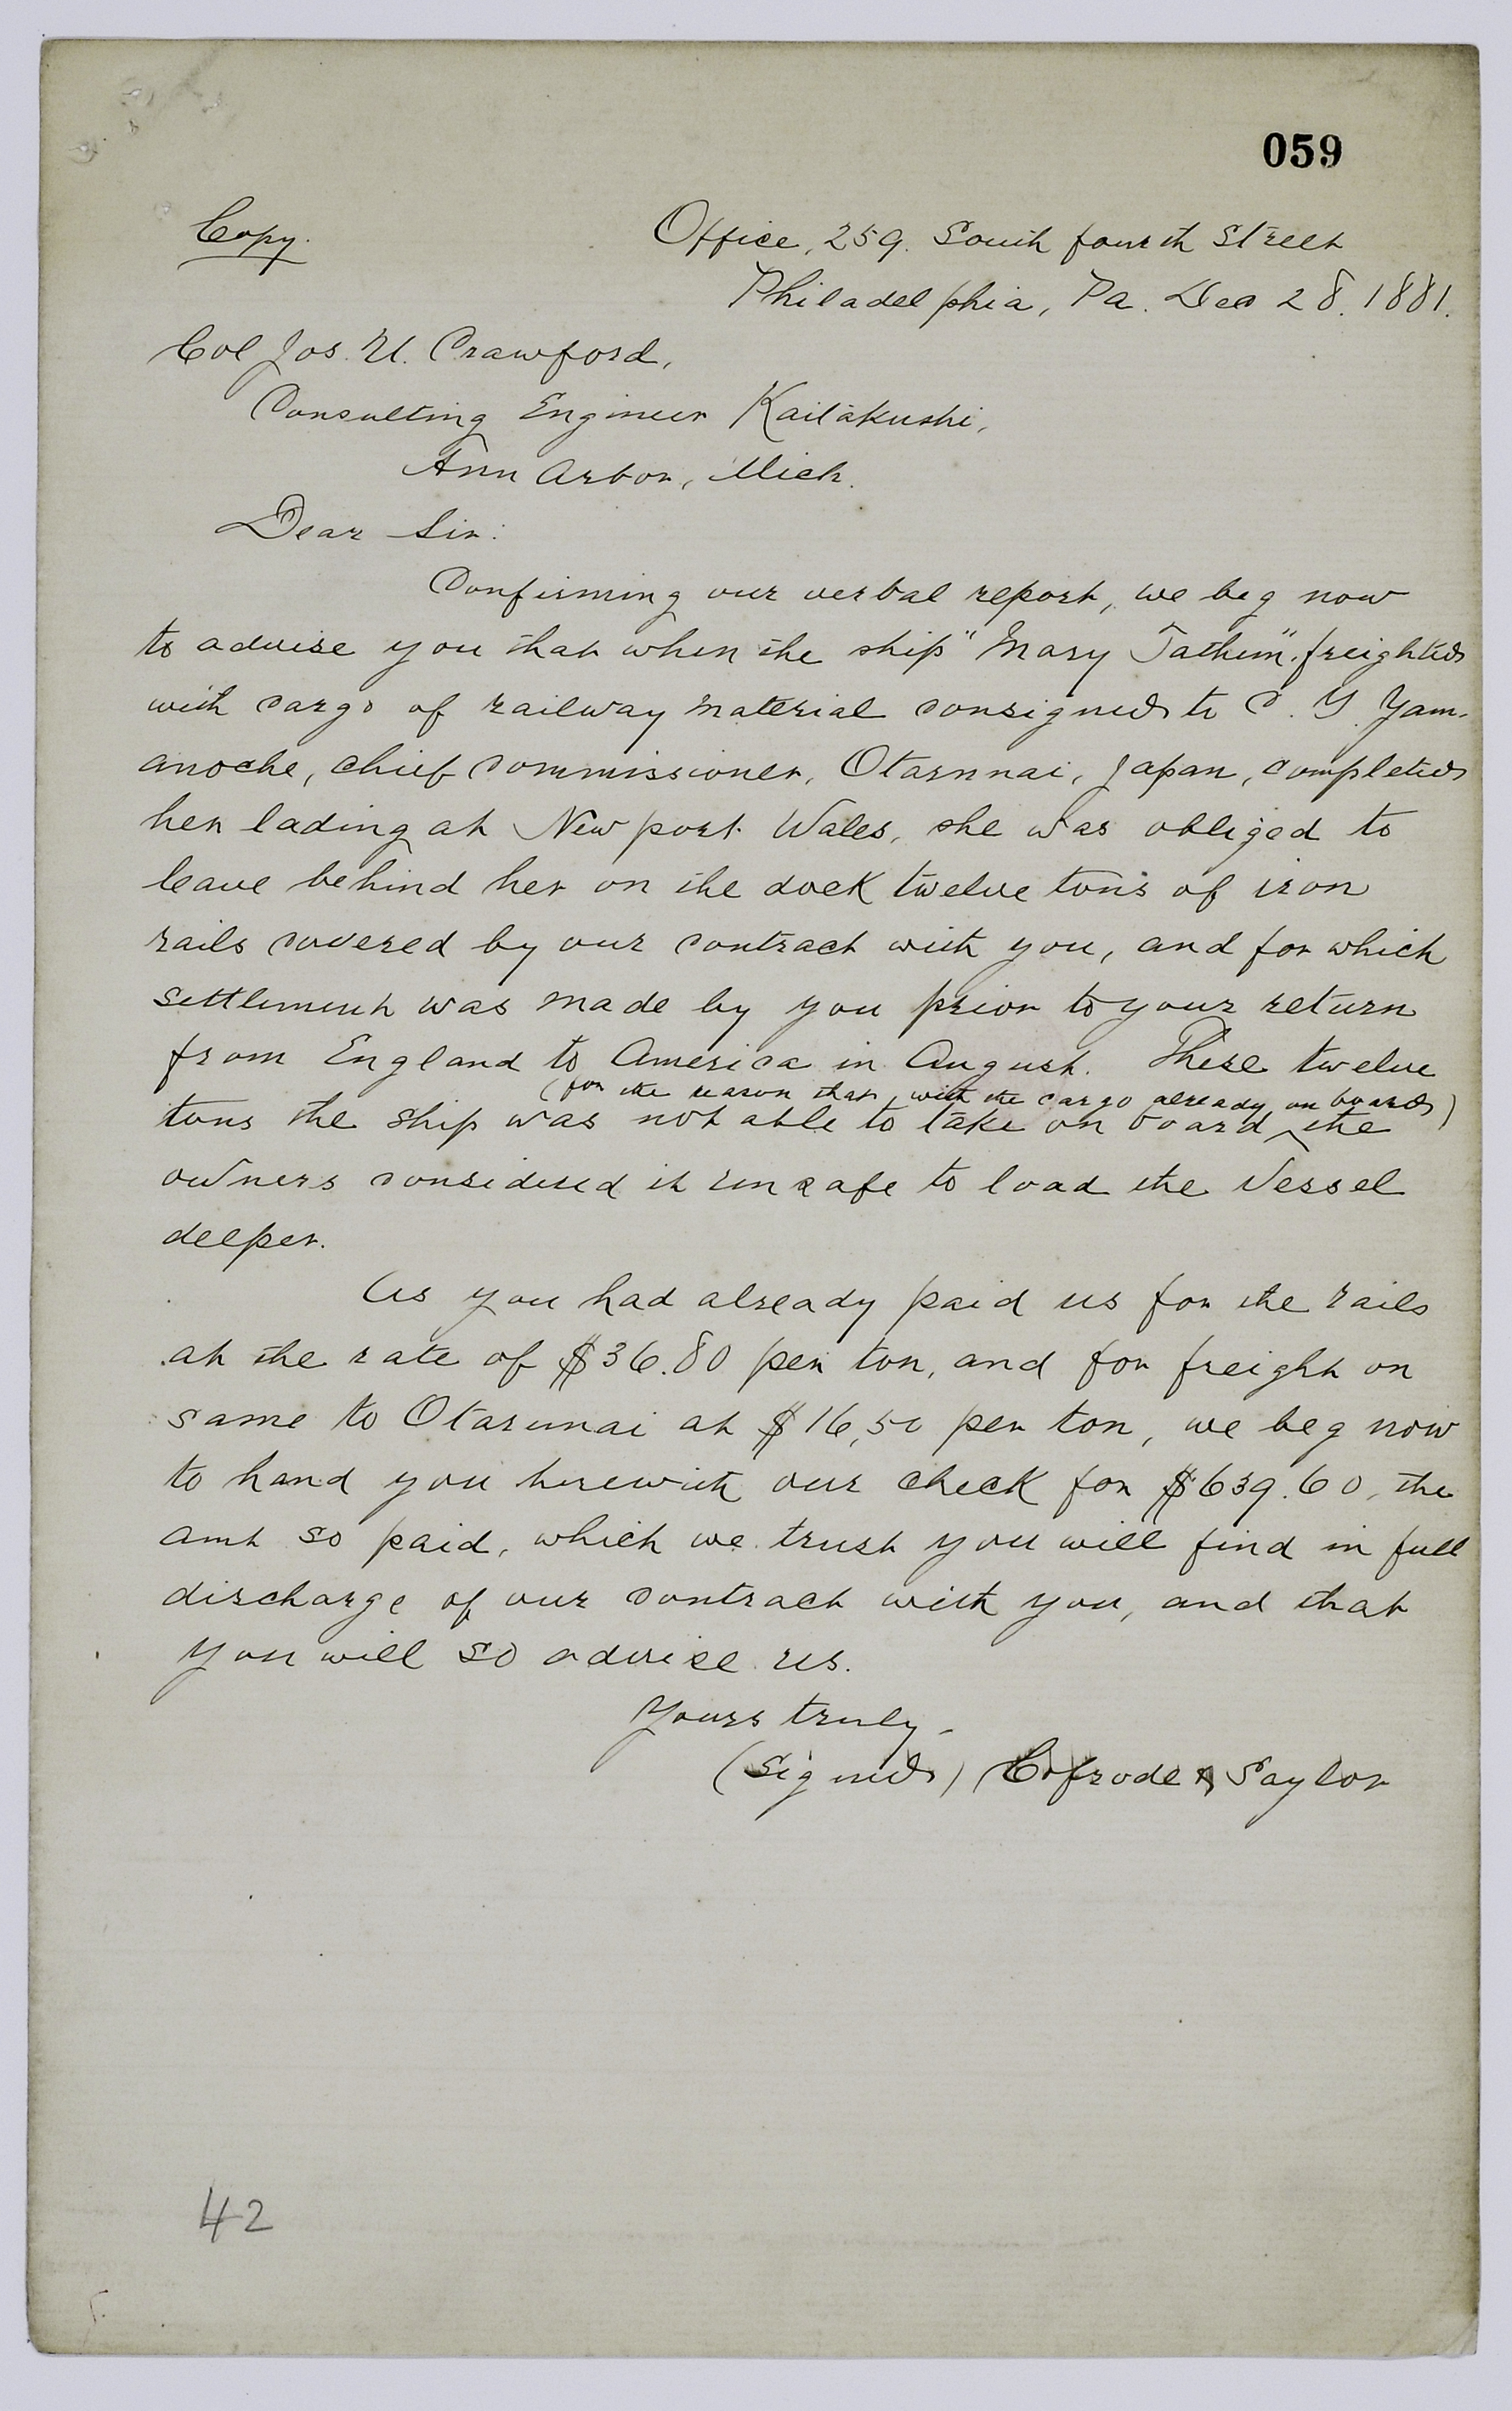 059
Copy.
Office, 259. South fourth Street
Philadelphia, Pa. Dec 28. 1881.
Col Jos. U. Crawford,
Consulting Engineer Kaitakushi,
Ann Arbor, Mich.
Dear Sir:
Confirming our verbal report, we beg now
to advise you that when the ship "Mary Tathem", freighted
with cargo of railway material consigned to C. Y. Yam-
anoche, chief commissioner, Otarunai, Japan, completed
her lading at Newport Wales, she was obliged to
leave behind her on the dock twelve tons of iron
rails covered by our contract with you, and for which
settlement was made by you prior to your return
from England to America in August. These twelve
(for the reason that, with the cargo already on board)
tons the ship was not able to take on board ^ the
owners considered it unsafe to load the Vessel
deeper.
As you had already paid us for the rails
at the rate of $36.80 per ton, and for freight on
same to Otarunai at $16,50 per ton, we beg now
to hand you herewith our check for $639.60, the
amt so paid, which we trust you will find in full
discharge of our contract with you, and that
you will so advise us.
Yours truly
(Signed) Cofrode & Saylor
42